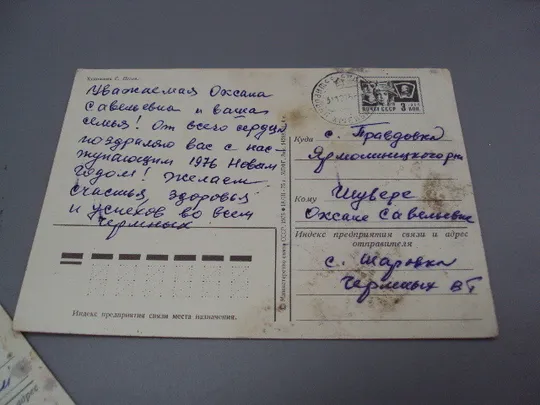 Уважаемая Оксана
Савельевна и ваша
семья! От всего сердца
поздравляю вас с нас-
тупающим 1976 Новым
годом! Желаем
счастья, здоровья
и успехов во всем
Чермных
Индекс предприятия связи места назначения.
© Министерство связи СССР. 1975
ПОЧТА СССР 3 КОП
Куда с. Правдовка
Ярмолинецкого рн
Кому Шувере
Оксане Савельевне
Индекс предприятия связи и адрес
отправителя
с. Шаровка
Чермных ВТ